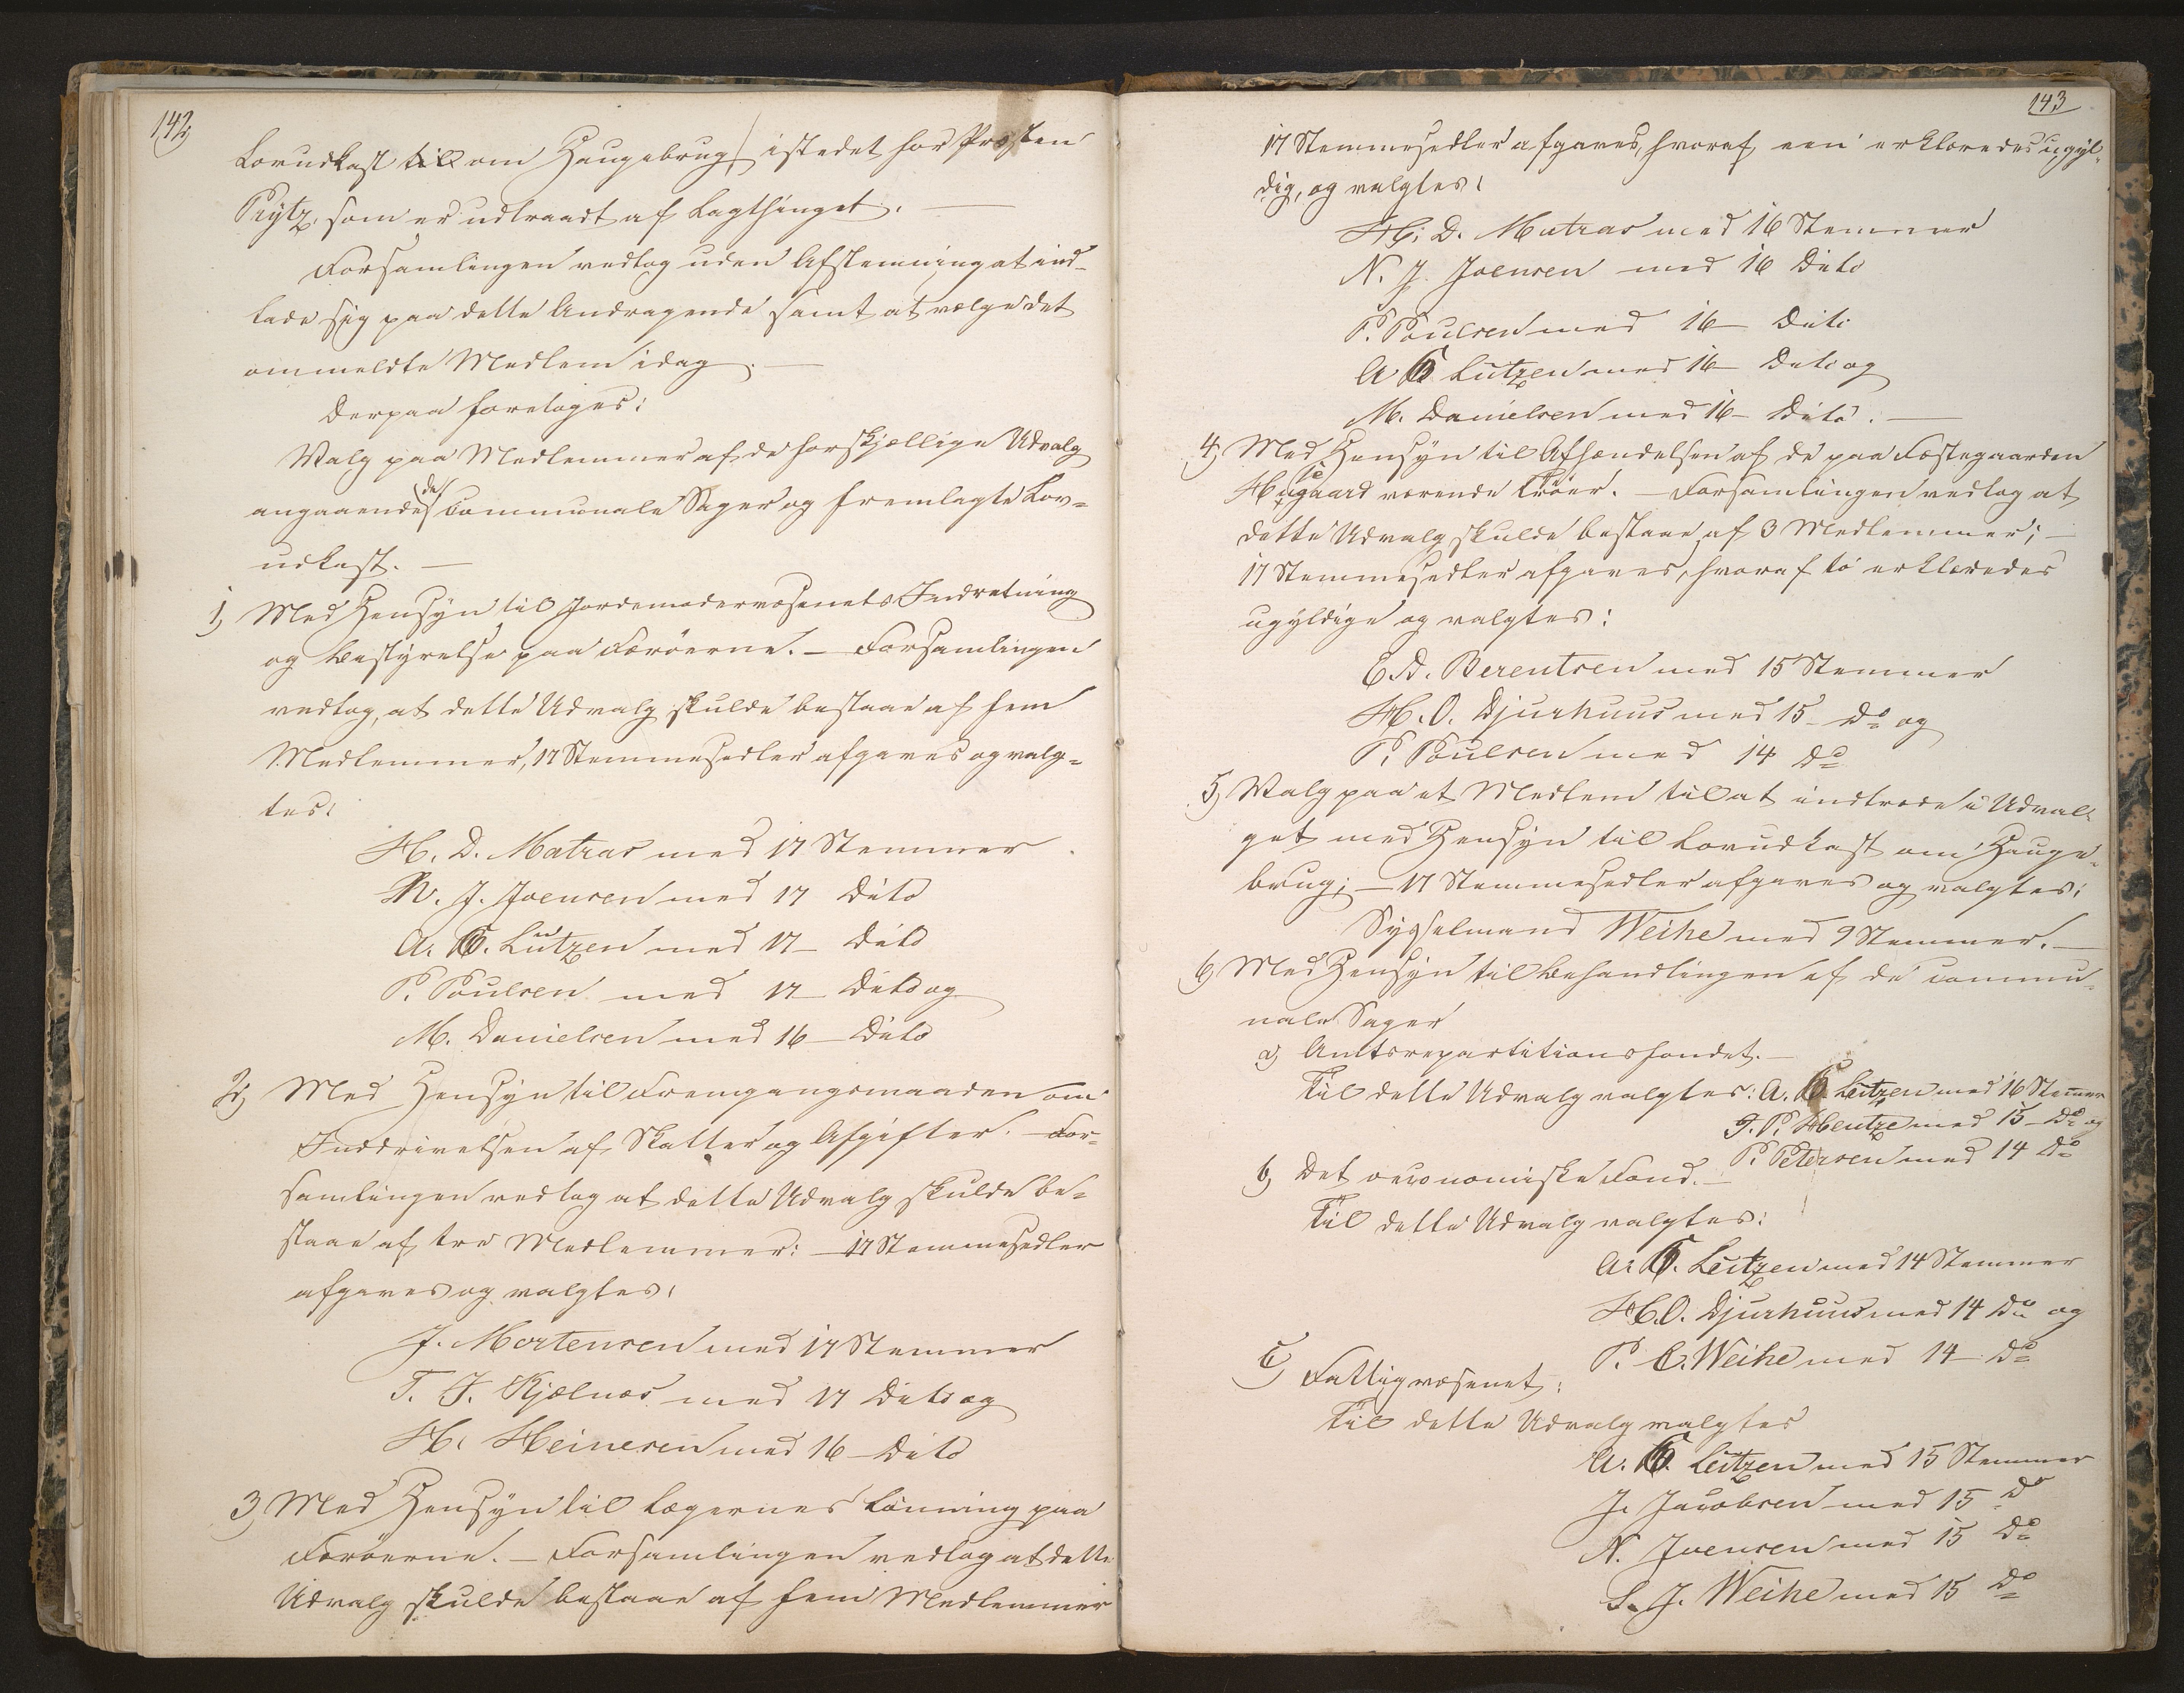 142,
Lovudkast til om Haugebrug istedet for Provsten
Prytz, som er udtraadt af Lagthinget. —
Forsamlingen vedtog uden Afstemning at ind-
lade sig paa dette Andragende samt at vælge det
ommeldte Medlem idag. —
Derpaa foretoges:
Valg paa Medlemmer af de forskjellige Udvalg
angaaende de communale Sager og fremlagte Lov-
udkast. —
1, Med Hensyn til Jordemodervæsenets Indretning
og Bestyrelse paa Færöerne. — Forsamlingen
vedtog, at dette Udvalg skulde bestaae af fem
Medlemmer, 17 Stemmesedler afgaves og valg-
tes:
H. D. Matras med 17 Stemmer
N. J. Joensen med 17 Dito
A. C. Lützen med 17 — Dito
P. Poulsen med 17 — Dito og
M. Danielsen med 16 — Dito
2, Med Hensyn til Fremgangsmaaden om
Inddrivelsen af Skatter og Afgifter. — For-
samlingen vedtog at dette Udvalg skulde be-
staae af tre Medlemmer: — 17 Stemmesedler
afgaves og valgtes:
J. Mortensen med 17 Stemmer
T. J. Kjølnæs med 17 Dito og
H. Heinesen med 16 — Dito
3, Med Hensyn til Lægernes Lönning paa
Færöerne. — Forsamlingen vedtog at dette
Udvalg skulde bestaae af fem Medlemmer
143
17 Stemmesedler afgaves, hvoraf een erklæredes ugyl-
dig, og valgtes:
H. D. Matras med 16 Stemmer
N. J. Joensen med 16 Dito
P. Poulsen med 16 — Dito
A C Lützen med 16 — Dito og
M. Danielsen med 16 — Dito. —
4, Med Hensyn til Afhændelsen af de paa Fæstegaarden
værende Tröer. — Forsamlingen vedtog at
dette Udvalg skulde bestaae af 3 Medlemmer; —
17 Stemmesedler afgaves, hvoraf to erklæredes
ugyldige og valgtes:
E. A. Berentsen med 15 Stemmer
H. O. Djurhuus med 15 — Do og
P. Poulsen med 14 Do
5, Valg paa et Medlem til at indtræde i Udval-
get med Hensyn til Lovudkast om Hauge-
brug; — 17 Stemmesedler afgaves og valgtes:
Sysselmand Weihe med 9 Stemmer. —
6, Med Hensyn til Behandlingen af de commu-
nale Sager
a, Amtsrepartitionsfondet. —
Til dette Udvalg valgtes: A. C. Lützen med 16 Stemmer
J. P. Hentze med 15 — Do og
P. Petersen med 14 Do
b, Det oeconomiske Fond. —
Til dette Udvalg valgtes:
A. C. Lützen med 14 Stemmer
H. O. Djurhuus med 14 Do og
P. C. Weihe med 14 — Do
c, Fattigvæsenet:
Til dette Udvalg valgtes
A. C. Lützen med 15 Stemmer
J. Jacobsen med 15 Do
N. Joensen med 15 Do
S. J. Weihe med 15 Do